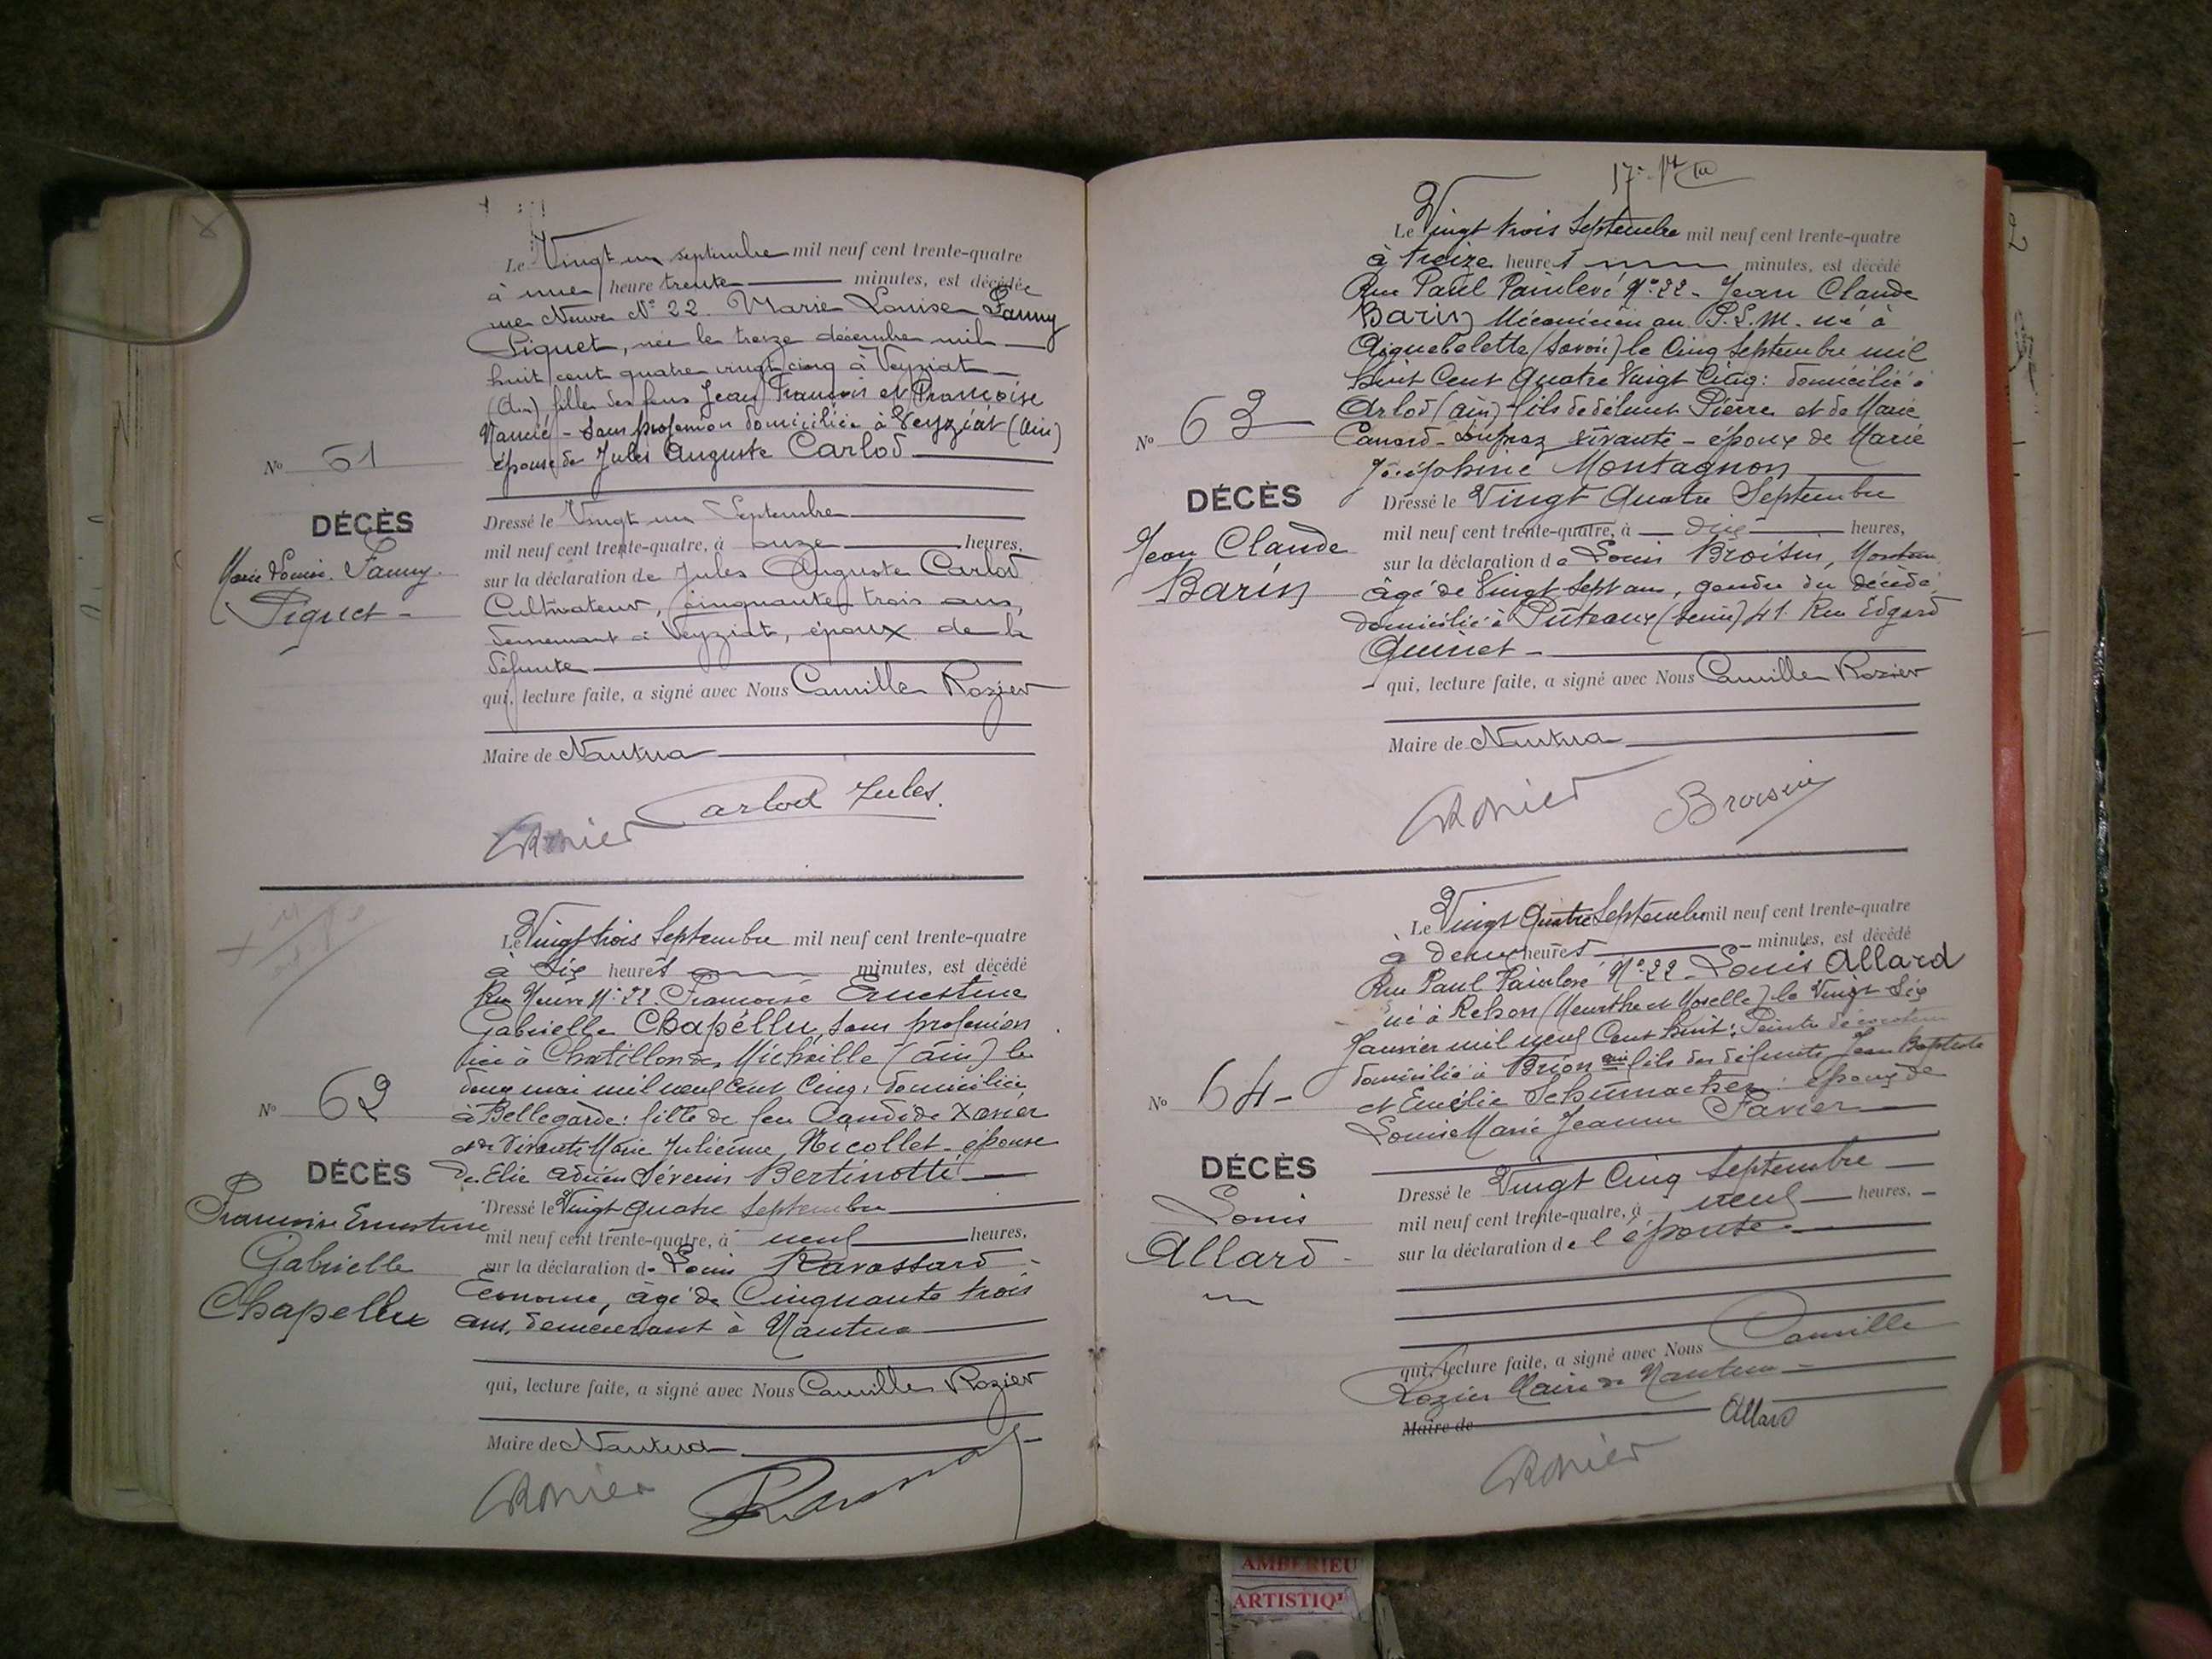 Le Vingt un septembre mil neuf cent trente-quatre
à une heure trente minutes, est décédée
rue Neuve N° 22. Marie Louise Fanny
Piquet, née le treize décembre mil
huit cent quatre vingt cinq à Veyziat
(Ain) fille des feus Jean François et Françoise
- Sans profession domiciliée à Veyziat (Ain)
épouse de Jules Auguste Carlod
No 61
DÉCÈS
Marie Louise Fanny
Piquet -
Dressé le Vingt un Septembre
mil neuf cent trente-quatre, à onze heures,
sur la déclaration de Jules Auguste Carlod
Cultivateur, cinquante trois ans,
demeurant à Veyziat, époux de la
défunte
qui, lecture faite, a signé avec Nous Camille Rozier
Maire de Nantua
Carlod Jules.
Rozier
Le Vingt trois Septembre mil neuf cent trente-quatre
à Six heures minutes, est décédé
Rue Neuve N° 22. Françoise Ernestine
Gabrielle Chapellu, sans profession
née à Chatillon de Michaille (Ain) le
deux mai mil neuf cent cinq: domiciliée
à Bellegarde: fille de feu Candide Xavier
et de vivante Marie Julienne Nicollet - épouse
de Elie Adrien Séverin Bertinotti
No 62
DÉCÈS
Françoise Ernestine
Gabrielle
Chapellu
Dressé le Vingt quatre Septembre
mil neuf cent trente-quatre, à neuf heures,
sur la déclaration de Louis Ravassard
Econome, âgé de Cinquante trois
ans, demeurant à Nantua
qui, lecture faite, a signé avec Nous Camille Rozier
Maire de Nantua
Rozier
17
Le Vingt trois Septembre mil neuf cent trente-quatre
à treize heures minutes, est décédé
Rue Paul Painlevé N° 22 - Jean Claude
Barin Mécanicien au P.L.M. né à
Aiguebelette (Savoie) le Cinq Septembre mil
huit Cent Quatre Vingt Cinq: domicilié à
Arlod (Ain) - fils de défunt Pierre et de Marie
vivante - époux de Marie
Joséphine Montagnon
No 63
DÉCÈS
Jean Claude
Barin
Dressé le Vingt Quatre Septembre
mil neuf cent trente-quatre, à dix heures,
sur la déclaration de Louis Broisin, Monteur
âgé de Vingt Sept ans, gendre du décédé
domicilié à Puteaux (Seine) 41 Rue Edgard
Quinet -
qui, lecture faite, a signé avec Nous Camille Rozier
Maire de Nantua
Rozier Broisin
Le Vingt Quatre Septembre mil neuf cent trente-quatre
à deux heures minutes, est décédé
Rue Paul Painlevé N° 22 - Louis Allard
né à Rehon (Meurthe et Moselle) le Vingt Six
Janvier mil neuf Cent huit: Peintre décorateur
domicilié à Brion Ain fils des défunts Jean Baptiste
et Emélie Schumacher: époux de
Louise Marie Jeanne Favier
No 64 -
DÉCÈS
Louis
Allard -
Dressé le Vingt Cinq Septembre
mil neuf cent trente-quatre, à neuf heures,
sur la déclaration de l'épouse.
qui, lecture faite, a signé avec Nous Camille
Rozier Maire de Nantua
Maire de Allard
Rozier
AMBERIEU
ARTISTIQ